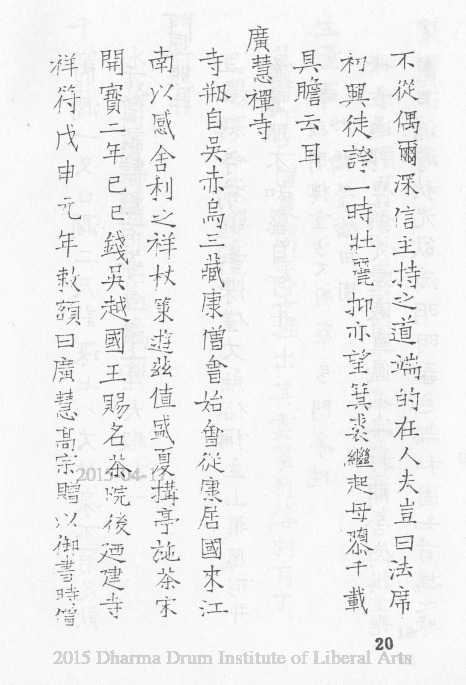 不從偶爾深信主持之道端的在人夫豈曰法席
初興徒誇一時壯麗抑亦望箕裘繼起毋隳千載
具瞻云耳
廣慧禪寺
寺剏自吳赤烏三藏康僧會始會從康居國來江
南以感舍利之祥杖策遊茲值盛夏搆亭施茶宋
開寶二年已巳錢吳越國王賜名茶院後廼建寺
祥符戊申元年敕額曰廣慧高宗贈以御書時僧
2015-04-1
20
2015 Dharma Drum Institute of Liberal Arts